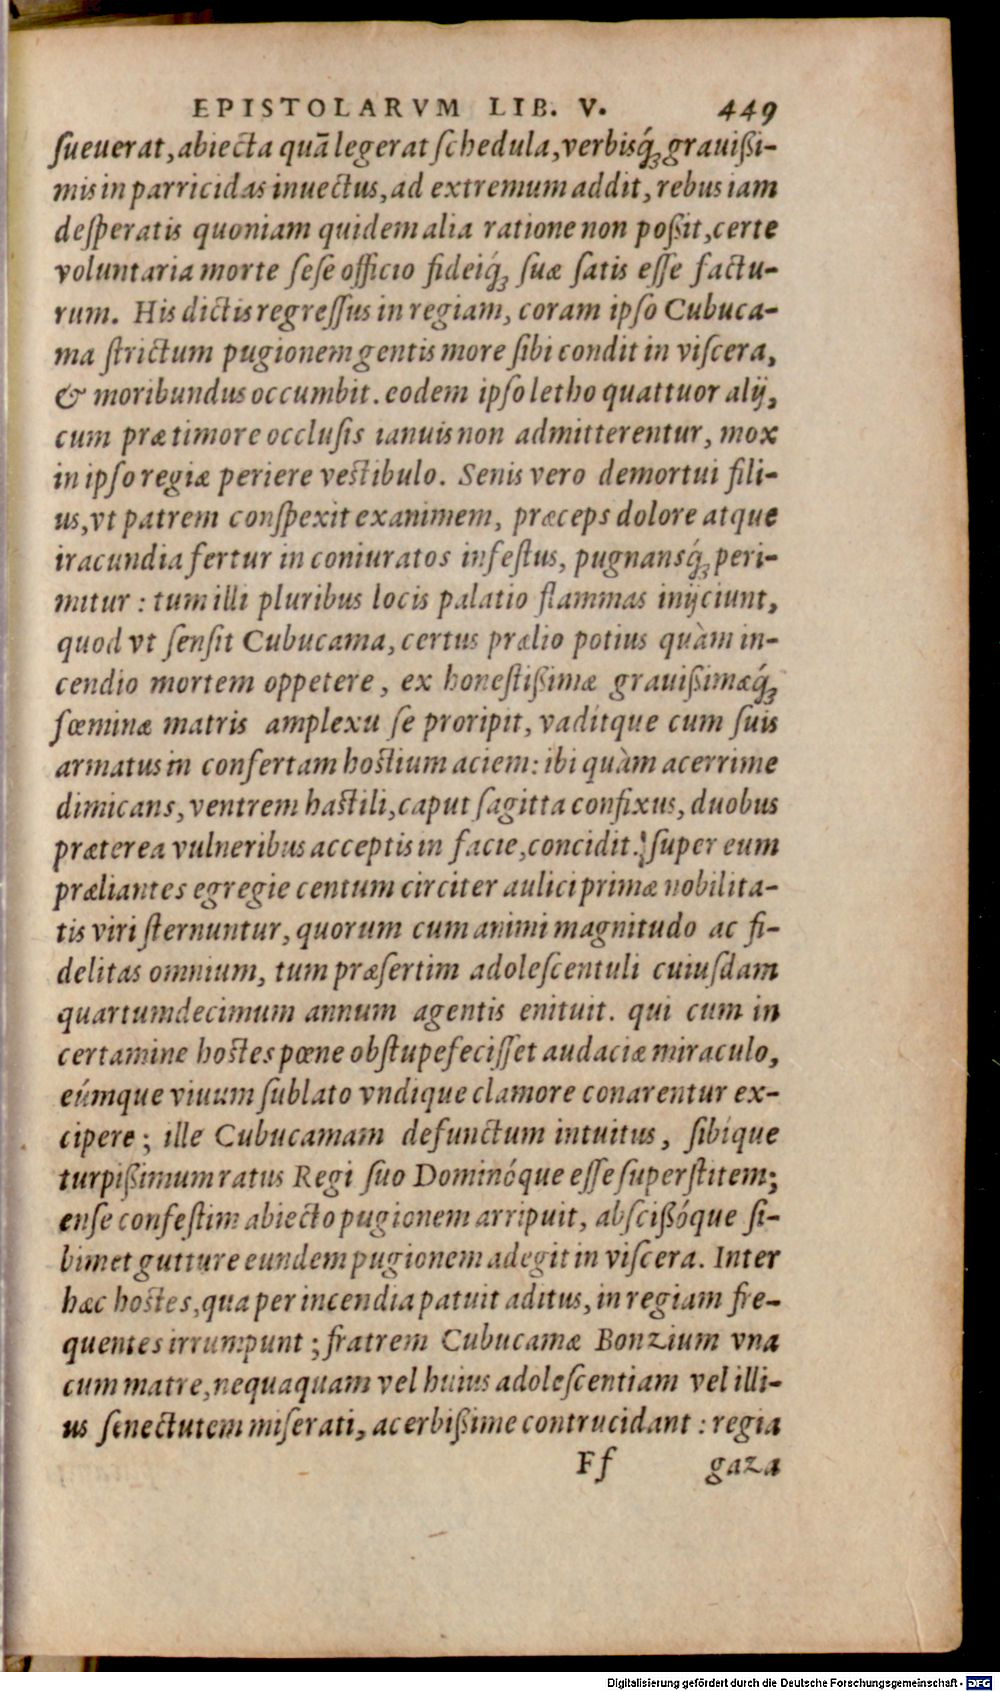 EPISTOLARVM LIB. V. 449
ſueuerat, abiecta quā legerat ſchedula, verbisq́ꝫ grauißi-
mis in parricidas inuectus, ad extremum addit, rebus iam
deſperatis quoniam quidem alia ratione non poßit, certe
voluntaria morte ſeſe officio fideiq́ꝫ ſuæ ſatis eſſe factu-
rum. His dictis regreſſus in regiam, coram ipſo Cubuca-
ma ſtrictum pugionem gentis more ſibi condit in viſcera,
& moribundus occumbit. eodem ipſo letho quattuor alij,
cum præ timore occluſis ianuis non admitterentur, mox
in ipſo regiæ periere veſtibulo. Senis vero demortui fili-
us, vt patrem conſpexit exanimem, præceps dolore atque
iracundia fertur in coniuratos infeſtus, pugnansq́ꝫ peri-
mitur : tum illi pluribus locis palatio flammas inijciunt,
quod vt ſenſit Cubucama, certus prælio potius quàm in-
cendio mortem oppetere, ex honeſtißimæ grauißimæq́ꝫ
fœminæ matris amplexu ſe proripit, vaditque cum ſuis
armatus in confertam hoſtium aciem: ibi quàm acerrime
dimicans, ventrem haſtili, caput ſagitta confixus, duobus
præterea vulneribus acceptis in facie, concidit. ſuper eum
præliantes egregie centum circiter aulici primæ nobilita-
tis viri ſternuntur, quorum cum animi magnitudo ac fi-
delitas omnium, tum præſertim adoleſcentuli cuiuſdam
quartumdecimum annum agentis enituit. qui cum in
certamine hoſtes pœne obſtupefeciſſet audaciæ miraculo,
eúmque viuum ſublato vndique clamore conarentur ex-
cipere ; ille Cubucamam defunctum intuitus, ſibíque
turpißimum ratus Regi ſuo Dominóque eſſe ſuperſtitem;
enſe confeſtim abiecto pugionem arripuit, abſcißóque ſi-
bimet gutture eundem pugionem adegit in viſcera. Inter
hæc hoſtes, qua per incendia patuit aditus, in regiam fre-
quentes irrumpunt ; fratrem Cubucamæ Bonzium vna
cum matre, nequaquam vel huius adoleſcentiam vel illi-
us ſenectutem miſerati, acerbißime contrucidant : regia
Ff gaza
Digitalisierung gefördert durch die Deutsche Forschungsgemeinschaft - DFG